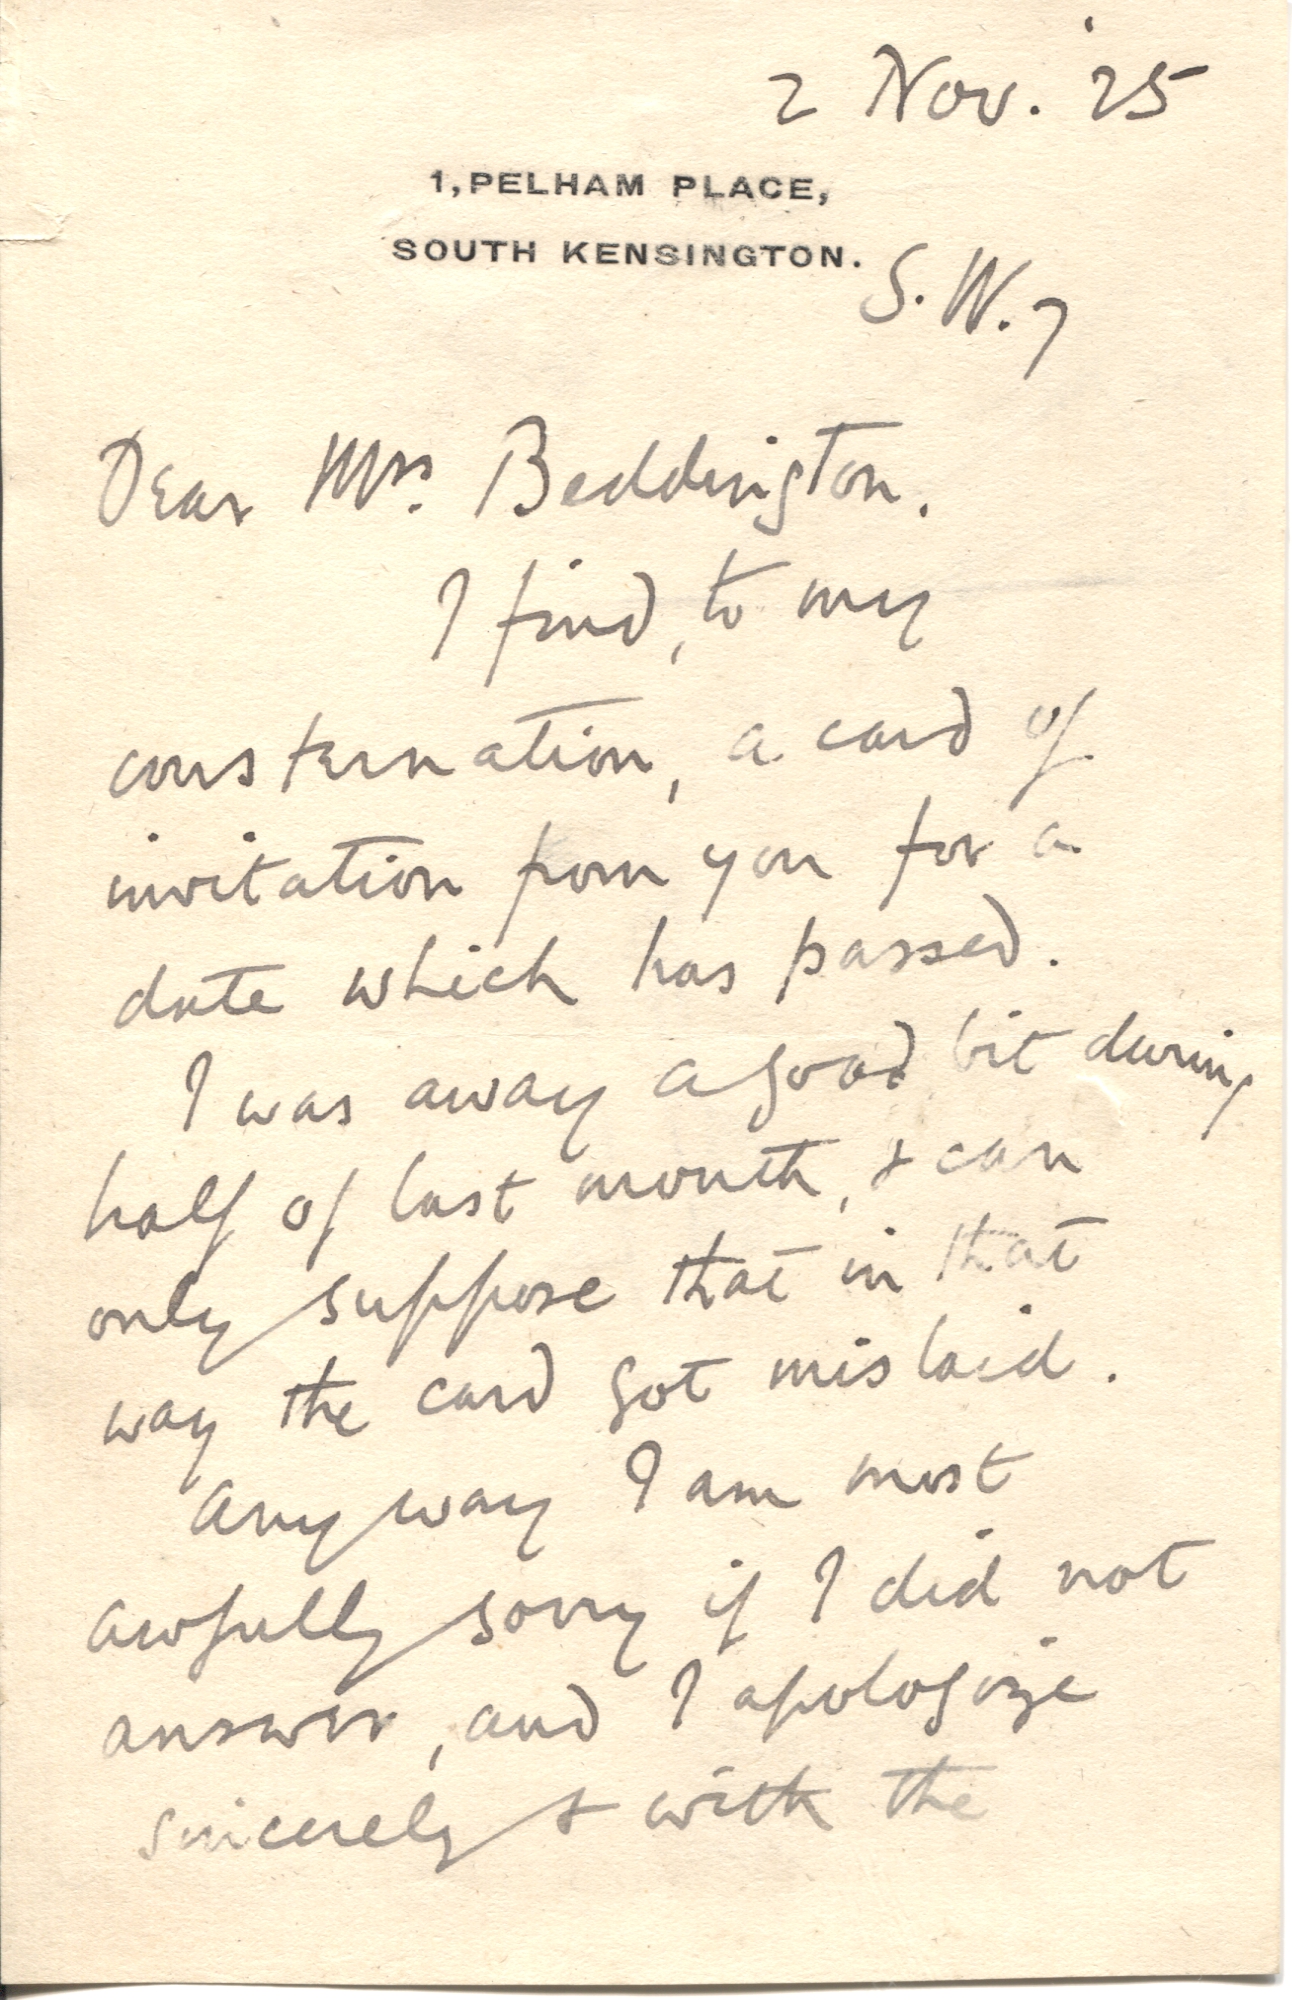 2 Nov. '25
1, PELHAM PLACE,
SOUTH KENSINGTON.
S.W.7
Dear Mrs. Beddington.
I find, to my
consternation, a card of
invitation from you for a
date which has passed.
I was away a good bit during
half of last month, & can
only suppose that in that
way the card got mislaid.
Anyway I am most
awfully sorry if I did not
answer, and I apologize
sincerely & with the